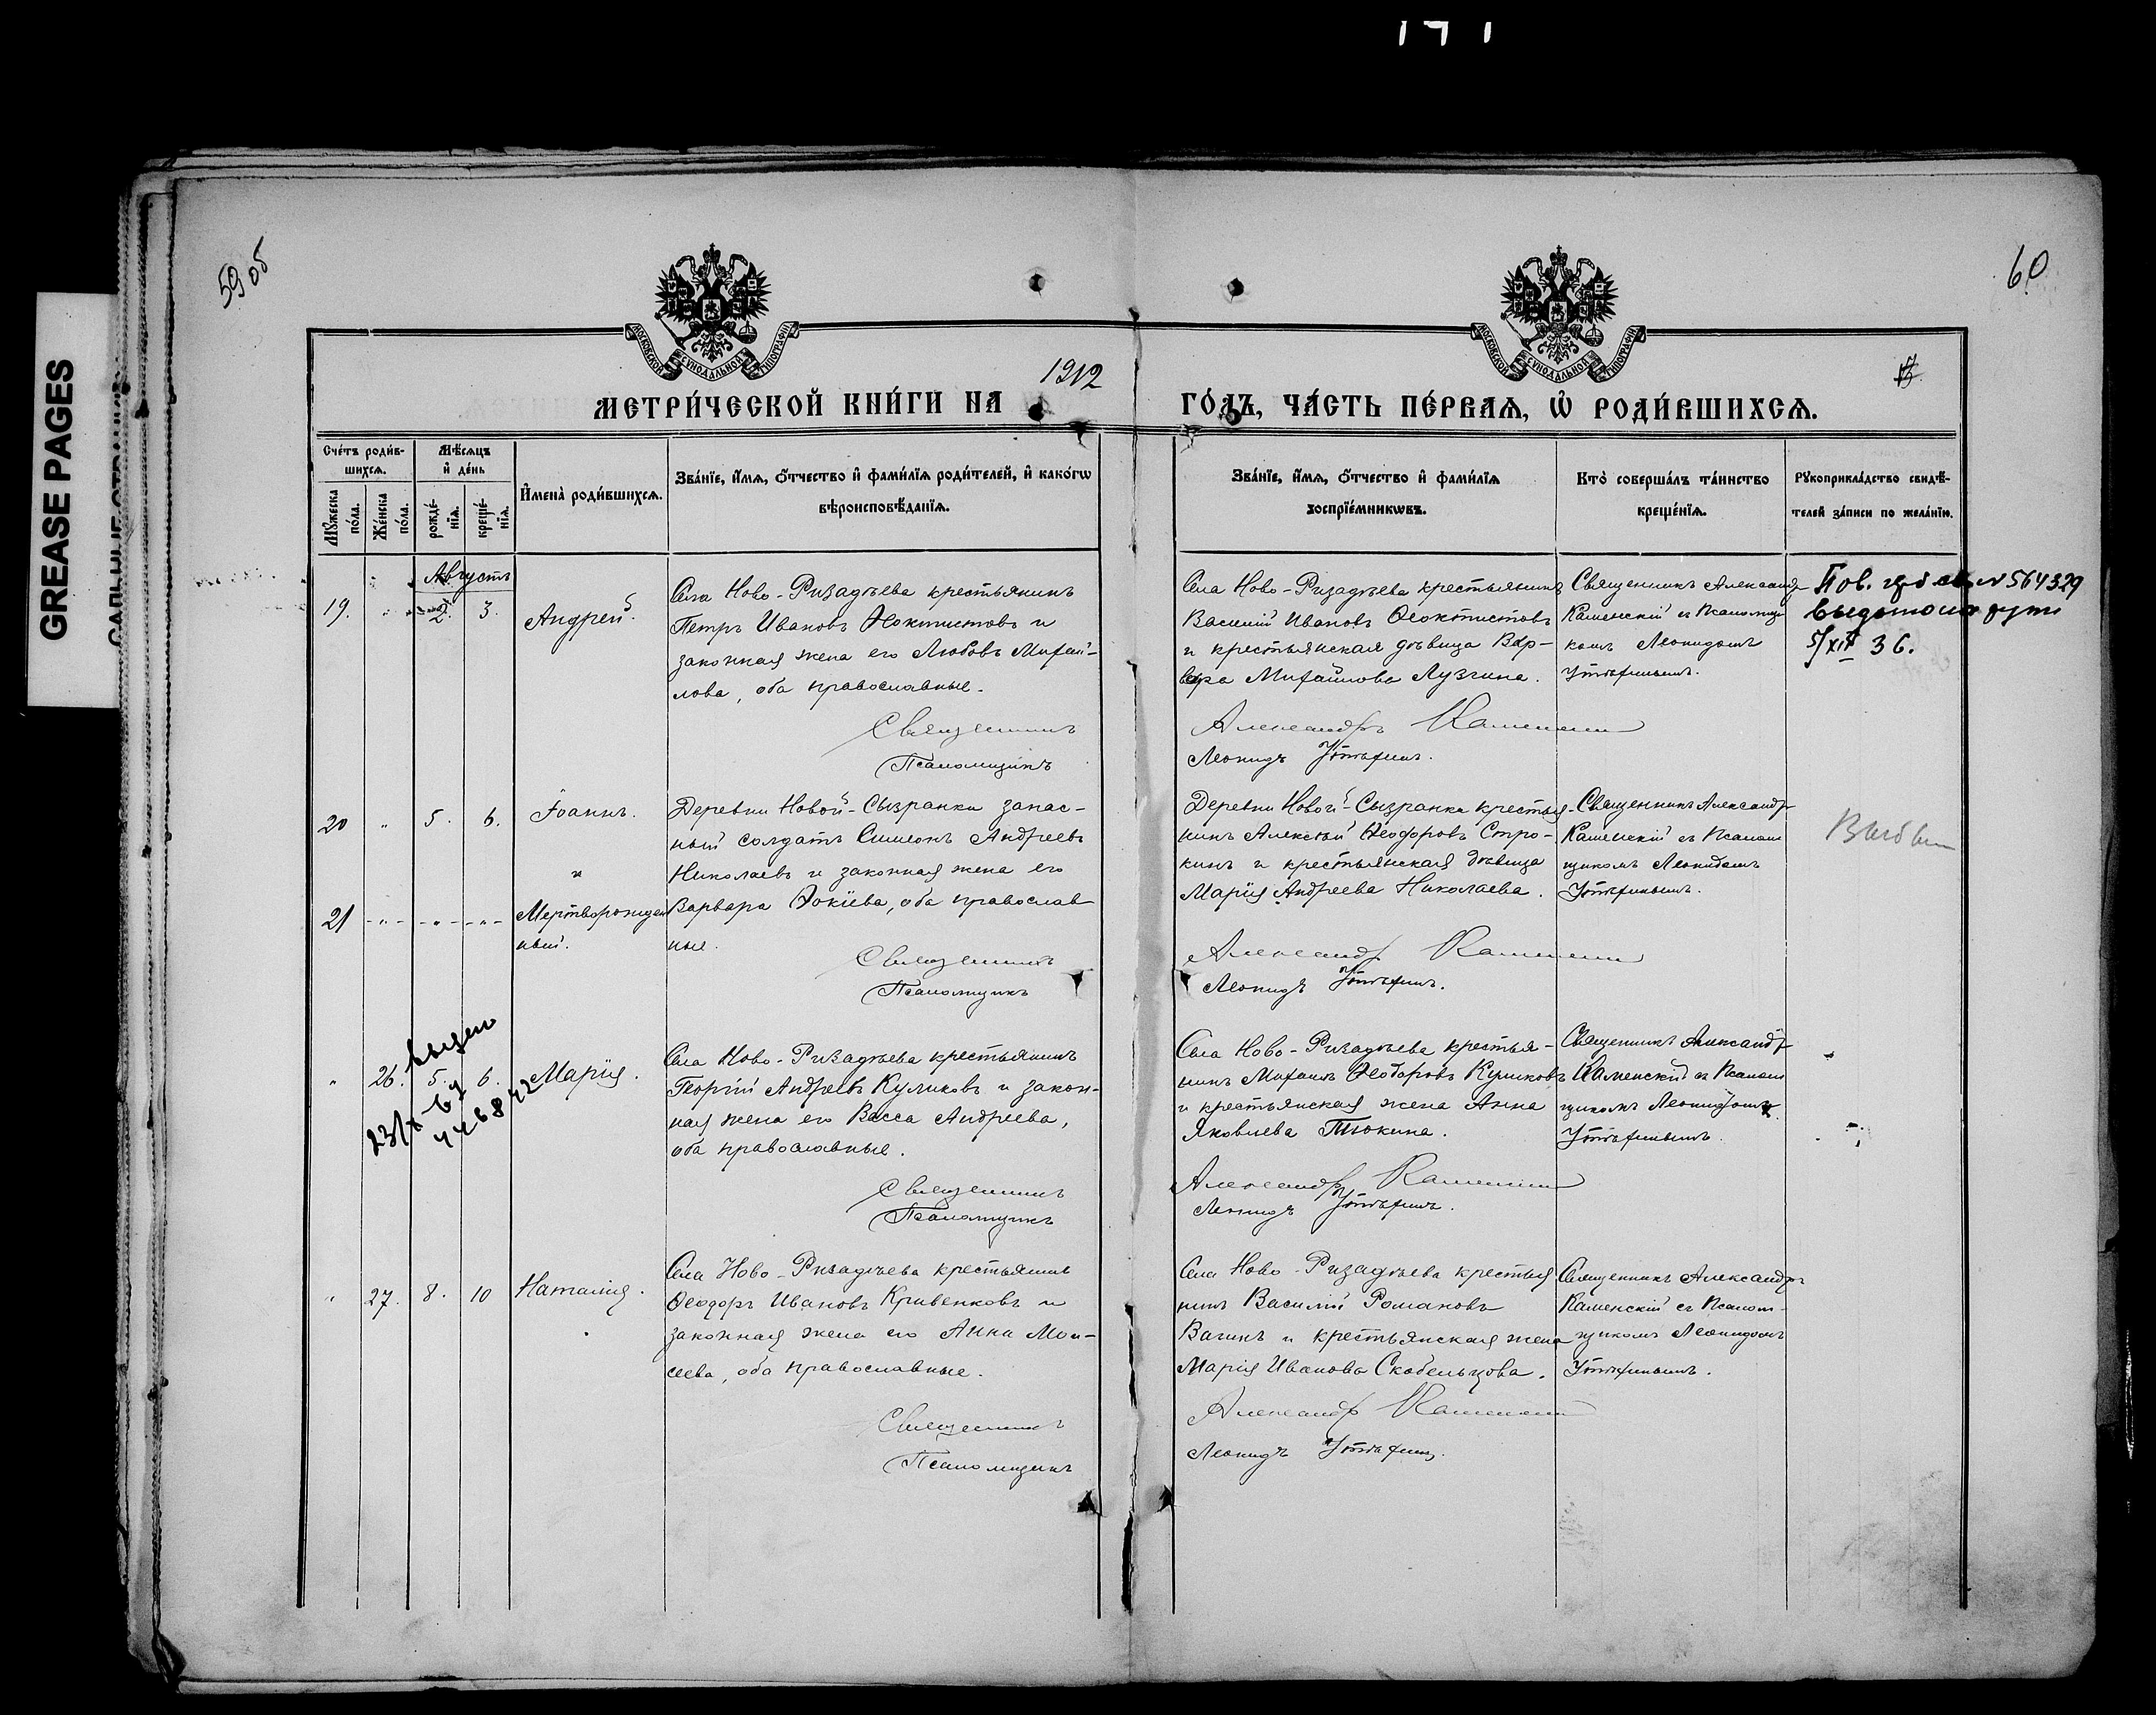 GREASE PAGES
59 об
60
МОСКОВСКОЙ СѴНОДАЛЬНОЙ ТИПОГРАФІИ
МОСКОВСКОЙ СѴНОДАЛЬНОЙ ТИПОГРАФІИ
МЕТРИ́ЧЕСКОЙ КНИ́ГИ НА 1912 ГО́ДЪ, ЧА́СТЬ ПЕ́РВАѦ, Ѡ҆ РОДИ́ВШИХСѦ.
Сче́тъ роди́в-
шихсѧ.
Мꙋ́жеска по́ла.
Же́нска по́ла.
Мѣ́сѧцъ
и҆ де́нь
рожде́-нїѧ.
креще́-нїѧ.
И҆мена̀ роди́вшихсѧ.
Зва́нїе, и҆́мѧ, ѻ҆́тчество и҆ фами́лїѧ роди́телей, и҆ како́гѡ
вѣроисповѣ́данїѧ.
Зва́нїе, и҆́мѧ, ѻ҆́тчество и҆ фами́лїѧ
воспрїе́мникѡвъ.
Кто̀ соверша́лъ та́инство
креще́нїѧ.
Рꙋкоприкла́дство свидѣ́-
телей за́писи по жела́нїю.
Августъ
19. " 2. 3. Андрей.
Села Ново-Ризадѣева крестьянинъ
Петръ Ивановъ Ѳеоктистовъ и
законная жена его Любовь Михаи-
лова, оба православные.
Священникъ
Псаломщикъ
Села Ново-Ризадѣева крестьянинъ
Василий Ивановъ Ѳеоктистовъ
и крестьянская дѣвица Вар-
вара Михайлова Лузгина.
Александръ Каменскій
Леонидъ
Священникъ Александръ
Каменскій съ Псаломщи-
комъ Леонидомъ
№ 564329
5/XII 36.
20 " 5. 6. Іоаннъ.
и
21 - " - - " - - " - Мертворожден
ный.
Деревни Новой-Сызранки запас-
ный солдатъ Симеонъ Андреевъ
Николаевъ и законная жена его
Варвара Ѳокіева, оба православ-
ные.
Священникъ
Псаломщикъ
Деревни Новой-Сызранки крестья-
нинъ Алексѣй Ѳеодоровъ Стро-
кинъ и крестьянская дѣвица
Марія Андреева Николаева.
Александръ Каменскій
Леонидъ
Священникъ Александръ
Каменскій съ Псалом
щикомъ Леонидомъ
" 26. 5. 6. Марія.
Села Ново-Ризадѣева крестьянинъ
Георгій Андреевъ Куликовъ и закон-
ная жена его Васса Андреева,
оба православные.
Священникъ
Псаломщикъ
Села Ново-Ризадѣева крестья-
нинъ Михаилъ Ѳеодоровъ Куликовъ
и крестьянская жена Анна
Яковлева Тюкина.
Александръ Каменскій
Леонидъ
Священникъ Александръ
Каменскій съ Псалом
щикомъ Леонидомъ
" 27. 8. 10 Наталія.
Села Ново-Ризадѣева крестьянинъ
Ѳеодоръ Ивановъ Кривенковъ и
законная жена его Анна Мои-
сеева, оба православные.
Священникъ
Псаломщикъ
Села Ново-Ризадѣева крестья
нинъ Василій Романовъ
Вагинъ и крестьянская жена
Марія Иванова Скобельцова.
Александръ Каменскій
Леонидъ
Священникъ Александръ
Каменскій съ Псалом-
щикомъ Леонидомъ